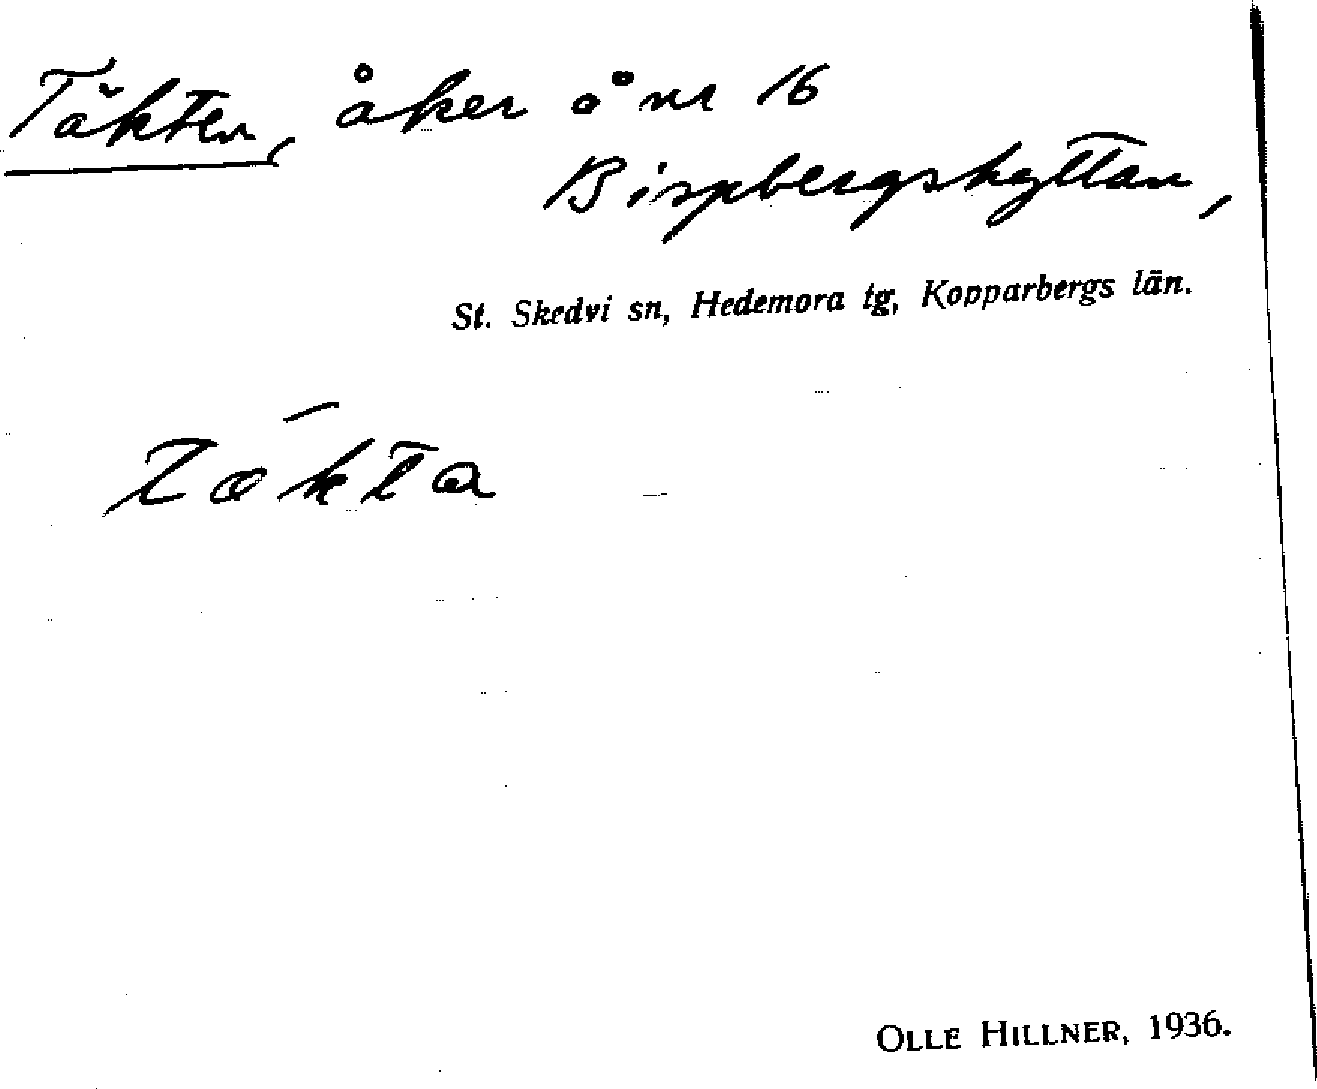 Täkten, åker å nr 16
Bispbergshyttan,
St. Skedvi sn, Hedemora tg, Kopparbergs län.
tækta
OLLE HILLNER, 1936.